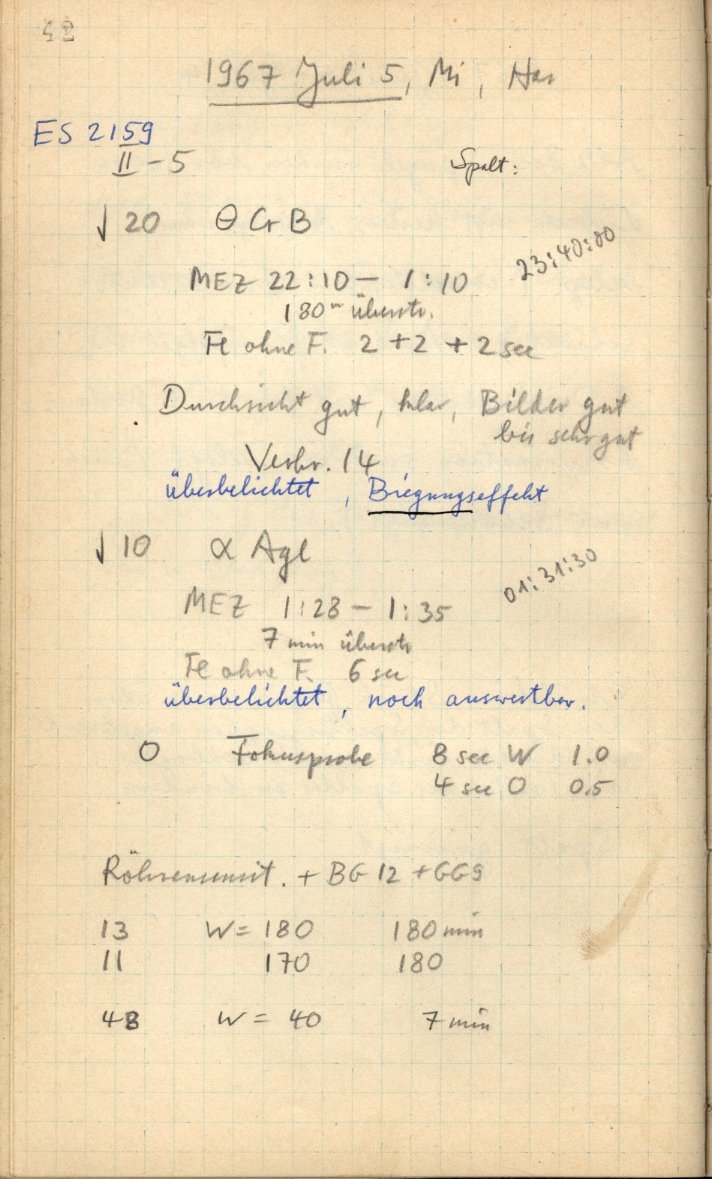 42
1967 Juli 5, Mi, Has
ES 2159
II - 5
Spalt:
√ 20 θ CrB
23:40:00
MEZ 22:10 - 1:10
180ᵐ überstr.
Fe ohne F. 2 + 2 + 2 sec
Durchsicht gut, klar, Bilder gut
bis sehr gut
Verbr. 14
überbelichtet, Biegungseffekt
√ 10 α Aql
01:31:30
MEZ 1:28 - 1:35
7 min überstr
Fe ohne F. 6 sec
überbelichtet, noch auswertbar.
0 Fokusprobe 8 sec W 1.0
4 sec O 0.5
Röhrensensit. + BG 12 + GG9
13 W = 180 180 min
11 170 180
48 W = 40 7 min